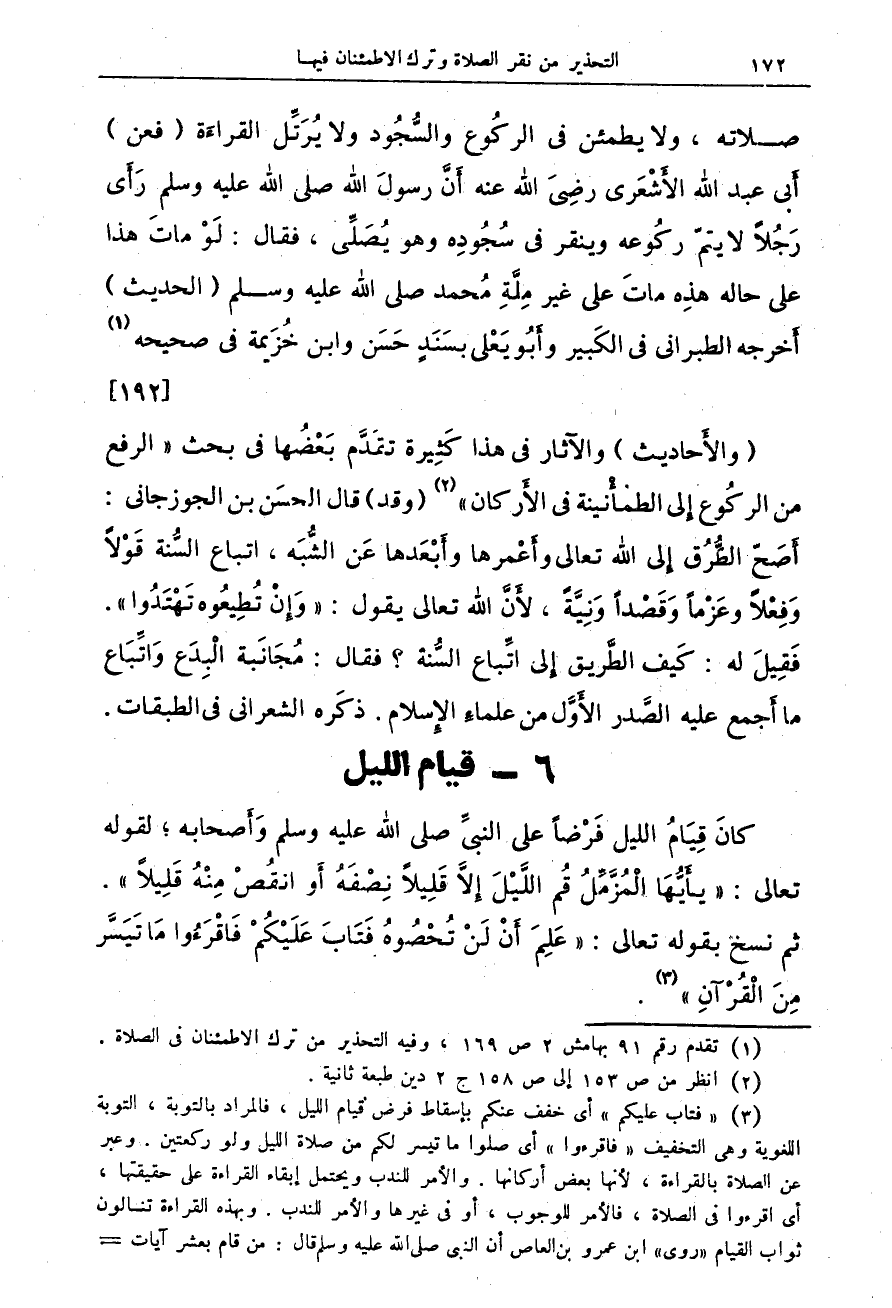 ١٧٢ التحذير من نقر الصلاة وترك الاطمئنان فيها
صـلاته ، ولا يطمئن فى الركُوع والسُّجُود ولا يُرَتِّل القراءة ( فعن )
أبى عبد الله الأَشْعَرى رضِىَ الله عنه أنَّ رسولَ الله صلى الله عليه وسلم رَأَى
رَجُلاً لا يتمّ ركُوعه وينقر فى سُجُودِه وهو يُصَلِّى ، فقال : لَوْ ماتَ هذا
على حاله هذِه ماتَ على غير مِلَّةِ مُحمد صلى الله عليه وسـلم ( الحديث )
أخرجه الطبرانى فى الكَبير وأَبُو يَعْلى بسَنَدٍ حَسَن وابن خُزَيمة فى صحيحه (١)
[١٩٢]
( والأَحاديث ) والآثار فى هذا كَثِيرة تقَدَّم بَعْضُها فى بحث « الرفع
من الركُوع إلى الطمَأْنينة فى الأَركان » (٢) ( وقد ) قال الحسَن بن الجوزجانى :
أَصَحّ الطُّرُق إلى الله تعالى وأَعْمرها وأَبْعَدها عَن الشُّبَه ، اتباع السُّنة قَوْلاً
وَفِعْلاً وعَزْماً وَقَصْداً وَنِيَّةً ، لأَنَّ الله تعالى يقول : « وَإِنْ تُطِيعُوه تَهْتَدُوا » .
فَقِيلَ له : كَيف الطَّريق إلى اتِّباع السُّنة ؟ فقال : مُجَانَبة الْبِدَع وَاتِّبَاع
ما أجمع عليه الصَّدر الأَوَّل من علماءِ الإِسلام . ذكَره الشعرانى فى الطبقات .
٦ – قيام الليل
كانَ قِيَامُ الليل فَرْضاً على النبىِّ صلى الله عليه وسلم وَأَصحابه ؛ لقوله
تعالى : « يـأَيُّهَا الْمُزَّمِّلُ قُم اللَّيْلَ إِلاَّ قَلِيلاً نِصْفَهُ أَو انقُصْ مِنْهُ قَلِيلاً » .
ثم نسخ بقوله تعالى : « عَلِمَ أَنْ لَنْ تُحْصُوهُ فَتَابَ عَلَيْكُمْ فَاقْرَءُوا مَا تَيَسَّرَ
مِنَ الْقُرْآنِ » (٣) .
(١) تقدم رقم ٩١ بهامش ٢ ص ١٦٩ ، وفيه التحذير من ترك الاطمئنان فى الصلاة .
(٢) انظر من ص ١٥٣ إلى ص ١٥٨ ج ٢ دين طبعة ثانية .
(٣) « فتاب عليكم » أى خفف عنكم بإسقاط فرض قيام الليل ، فالمراد بالتوبة ، التوبة
اللغوية وهى التخفيف « فاقرءوا » أى صلوا ما تيسر لكم من صلاة الليل ولو ركعتين . وعبر
عن الصلاة بالقراءة ، لأنها بعض أركانها . والأمر للندب ويحتمل إبقاء القراءة على حقيقتها ،
أى اقرءوا فى الصلاة ، فالأمر للوجوب ، أو فى غيرها والأمر للندب . وبهذه القراءة تنـالون
ثواب القيام «روى» ابن عمرو بن العاص أن النبى صلى الله عليه وسلم قال : من قام بعشر آيات =